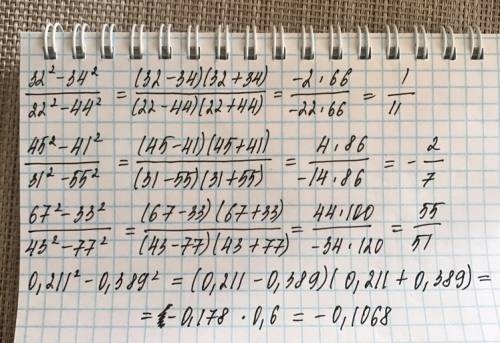 (32² - 34²)/(22² - 44²) = ((32 - 34)(32 + 34))/((22 - 44)(22 + 44)) = (-2 · 66)/(-22 · 66) = 1/11
(45² - 41²)/(31² - 55²) = ((45 - 41)(45 + 41))/((31 - 55)(31 + 55)) = (4 · 86)/(-14 · 86) = - 2/7
(67² - 33²)/(43² - 77²) = ((67 - 33)(67 + 33))/((43 - 77)(43 + 77)) = (44 · 100)/(-34 · 120) = 55/51
0,211² - 0,389² = (0,211 - 0,389)(0,211 + 0,389) =
= -0,178 · 0,6 = -0,1068